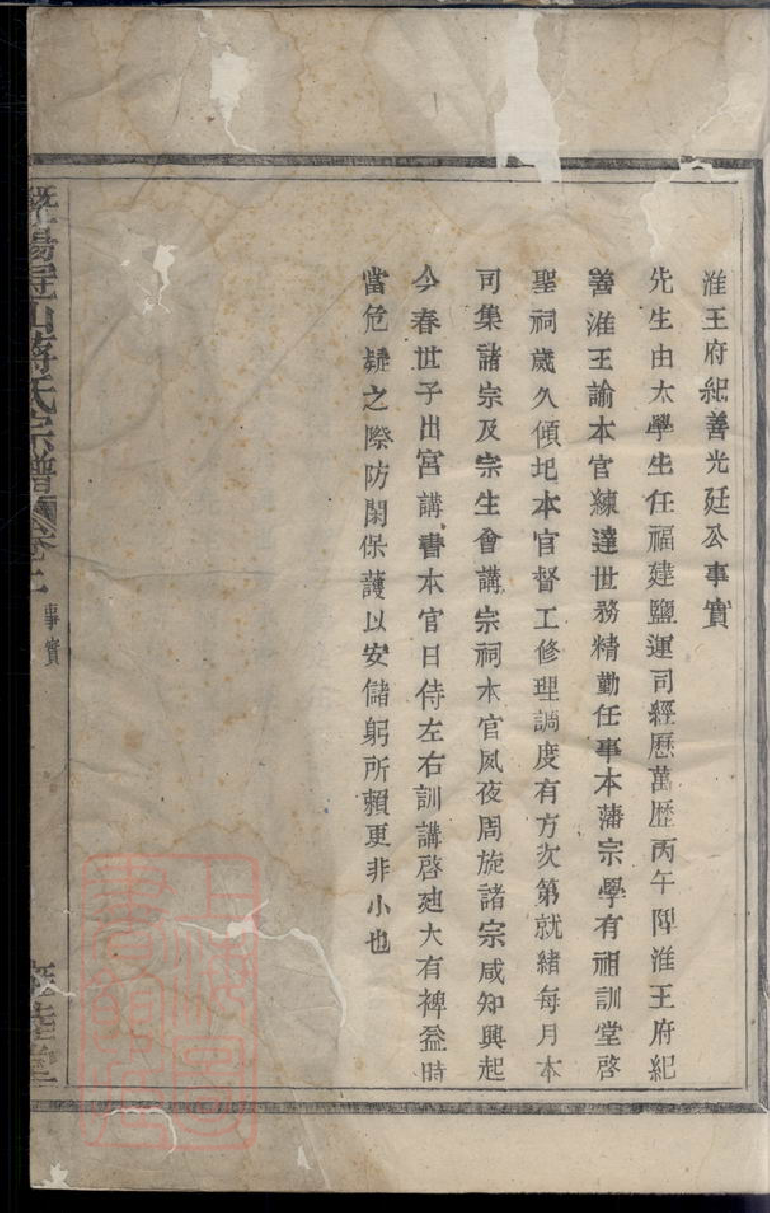 淮王府紀善光廷公事實
先生由太學生任福建鹽運司經歷萬歷丙午陞淮王府紀
善淮王諭本官練達世務精勤任事本藩宗學有祖訓堂啓
聖祠歲久傾圮本官督工修理調度有方次第就緒每月本
司集諸宗及宗生會講宗祠本官夙夜周旋諸宗咸知興起
今春世子出宮講書本官日侍左右訓講啓廸大有裨益時
當危疑之際防閑保護以安儲躬所賴更非小也
暨陽冠山蔣氏宗譜
卷二
事實
上海圖書館藏